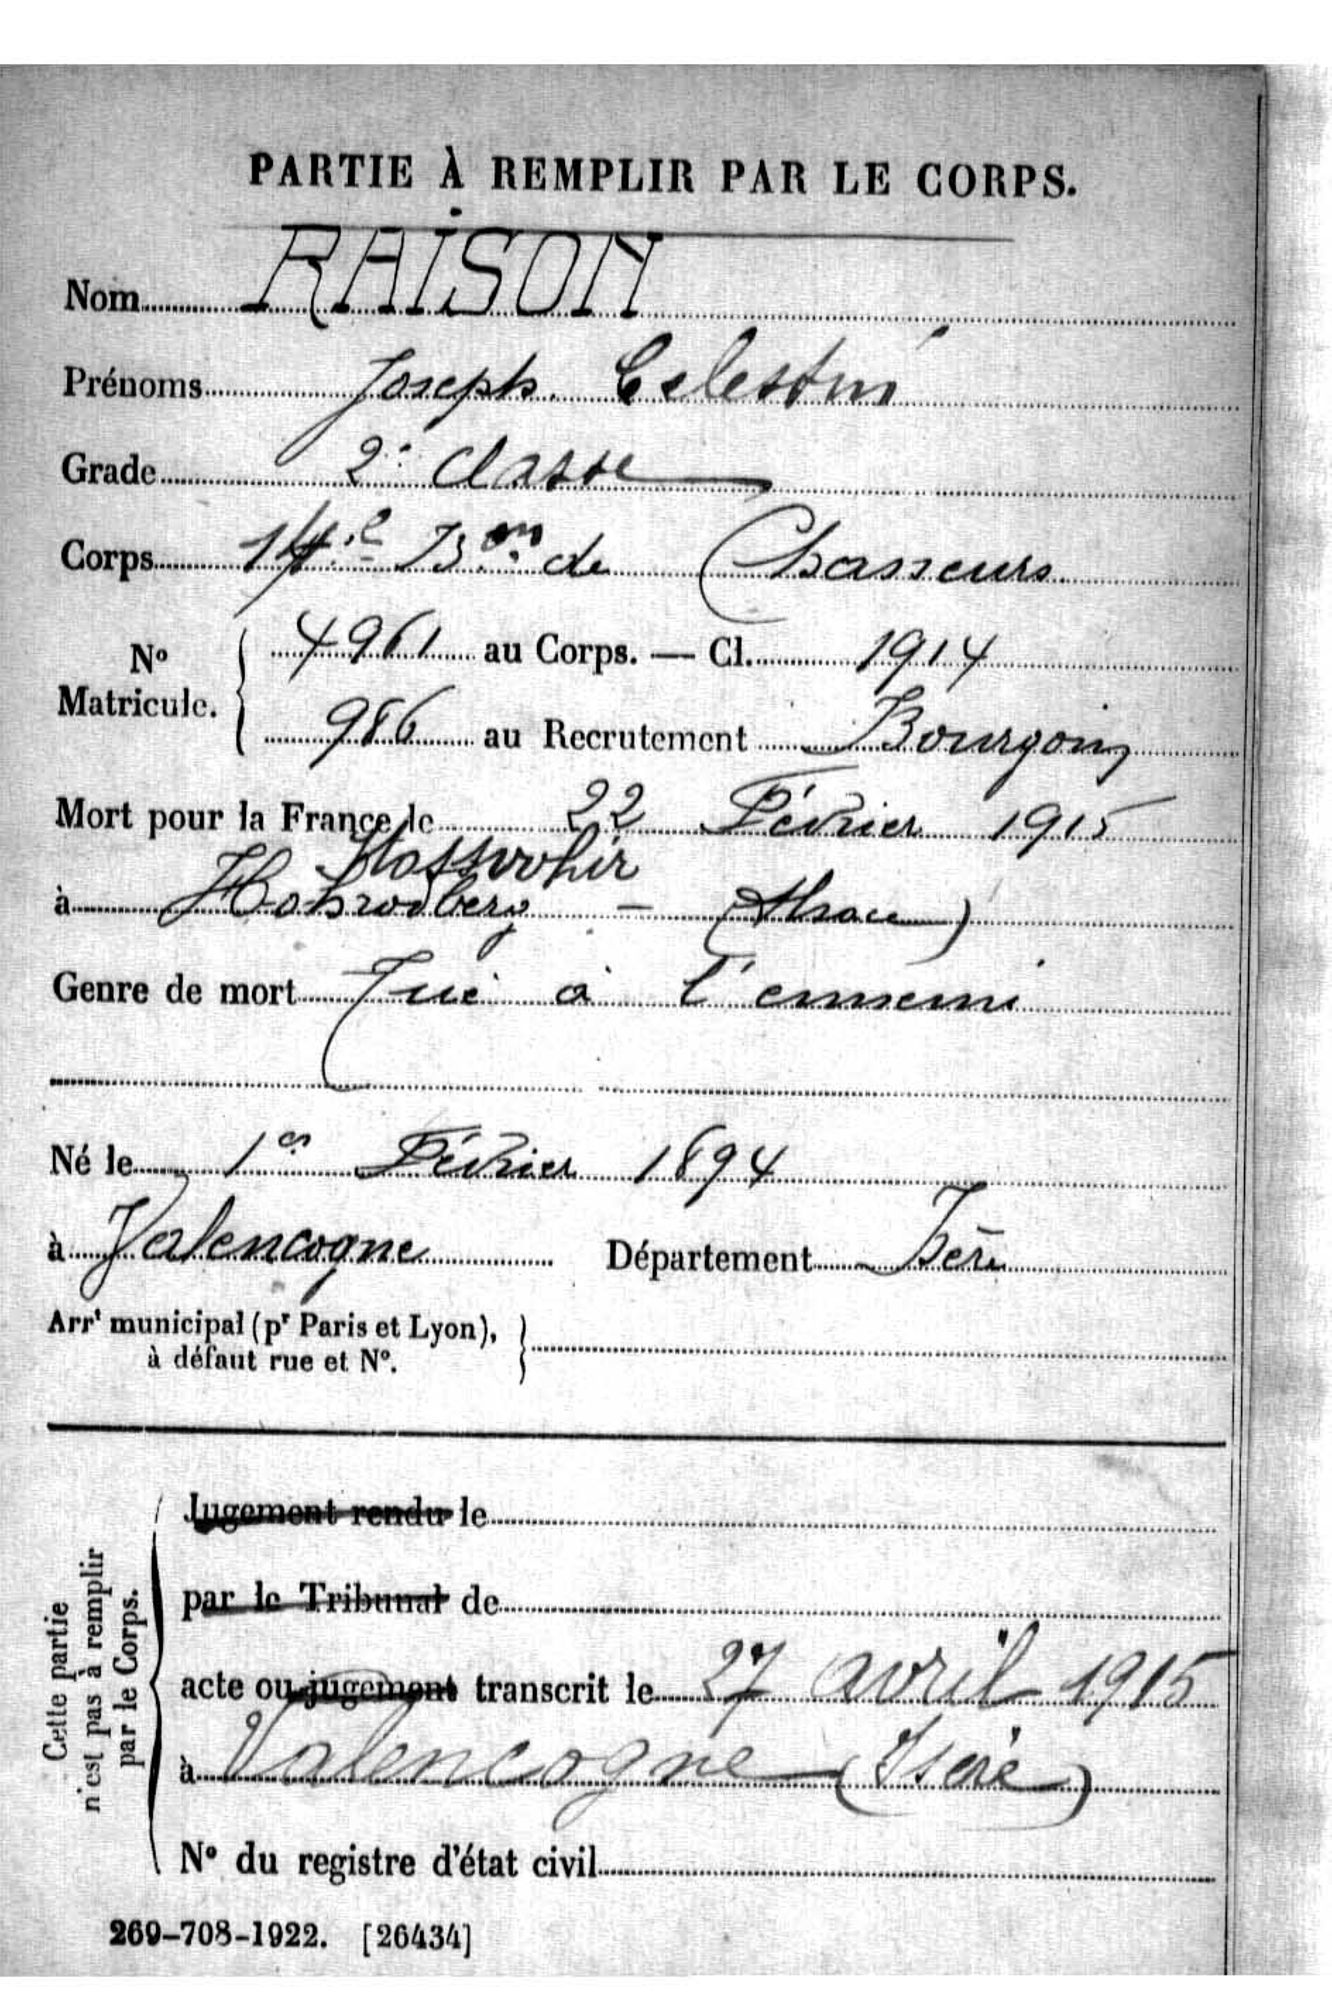 PARTIE À REMPLIR PAR LE CORPS.
Nom RAISON
Prénoms Joseph. Célestin
Grade 2e Classe
Corps 14.e Bon de Chasseurs
No Matricule. 4961 au Corps. — Cl. 1914
986 au Recrutement Bourgoin
Mort pour la France le 22 Février 1915
à Hohrodberg – (Alsace)
Genre de mort Tué à l'ennemi
Né le 1er Février 1894
à Valencogne Département Isère
Arrt municipal (pr Paris et Lyon),
à défaut rue et No.
Cette partie
n'est pas à remplir
par le Corps.
Jugement rendu le
par le Tribunal de
acte ou jugement transcrit le 27 avril 1915
à Valencogne (Isère)
No du registre d'état civil
269-708-1922. [26434]